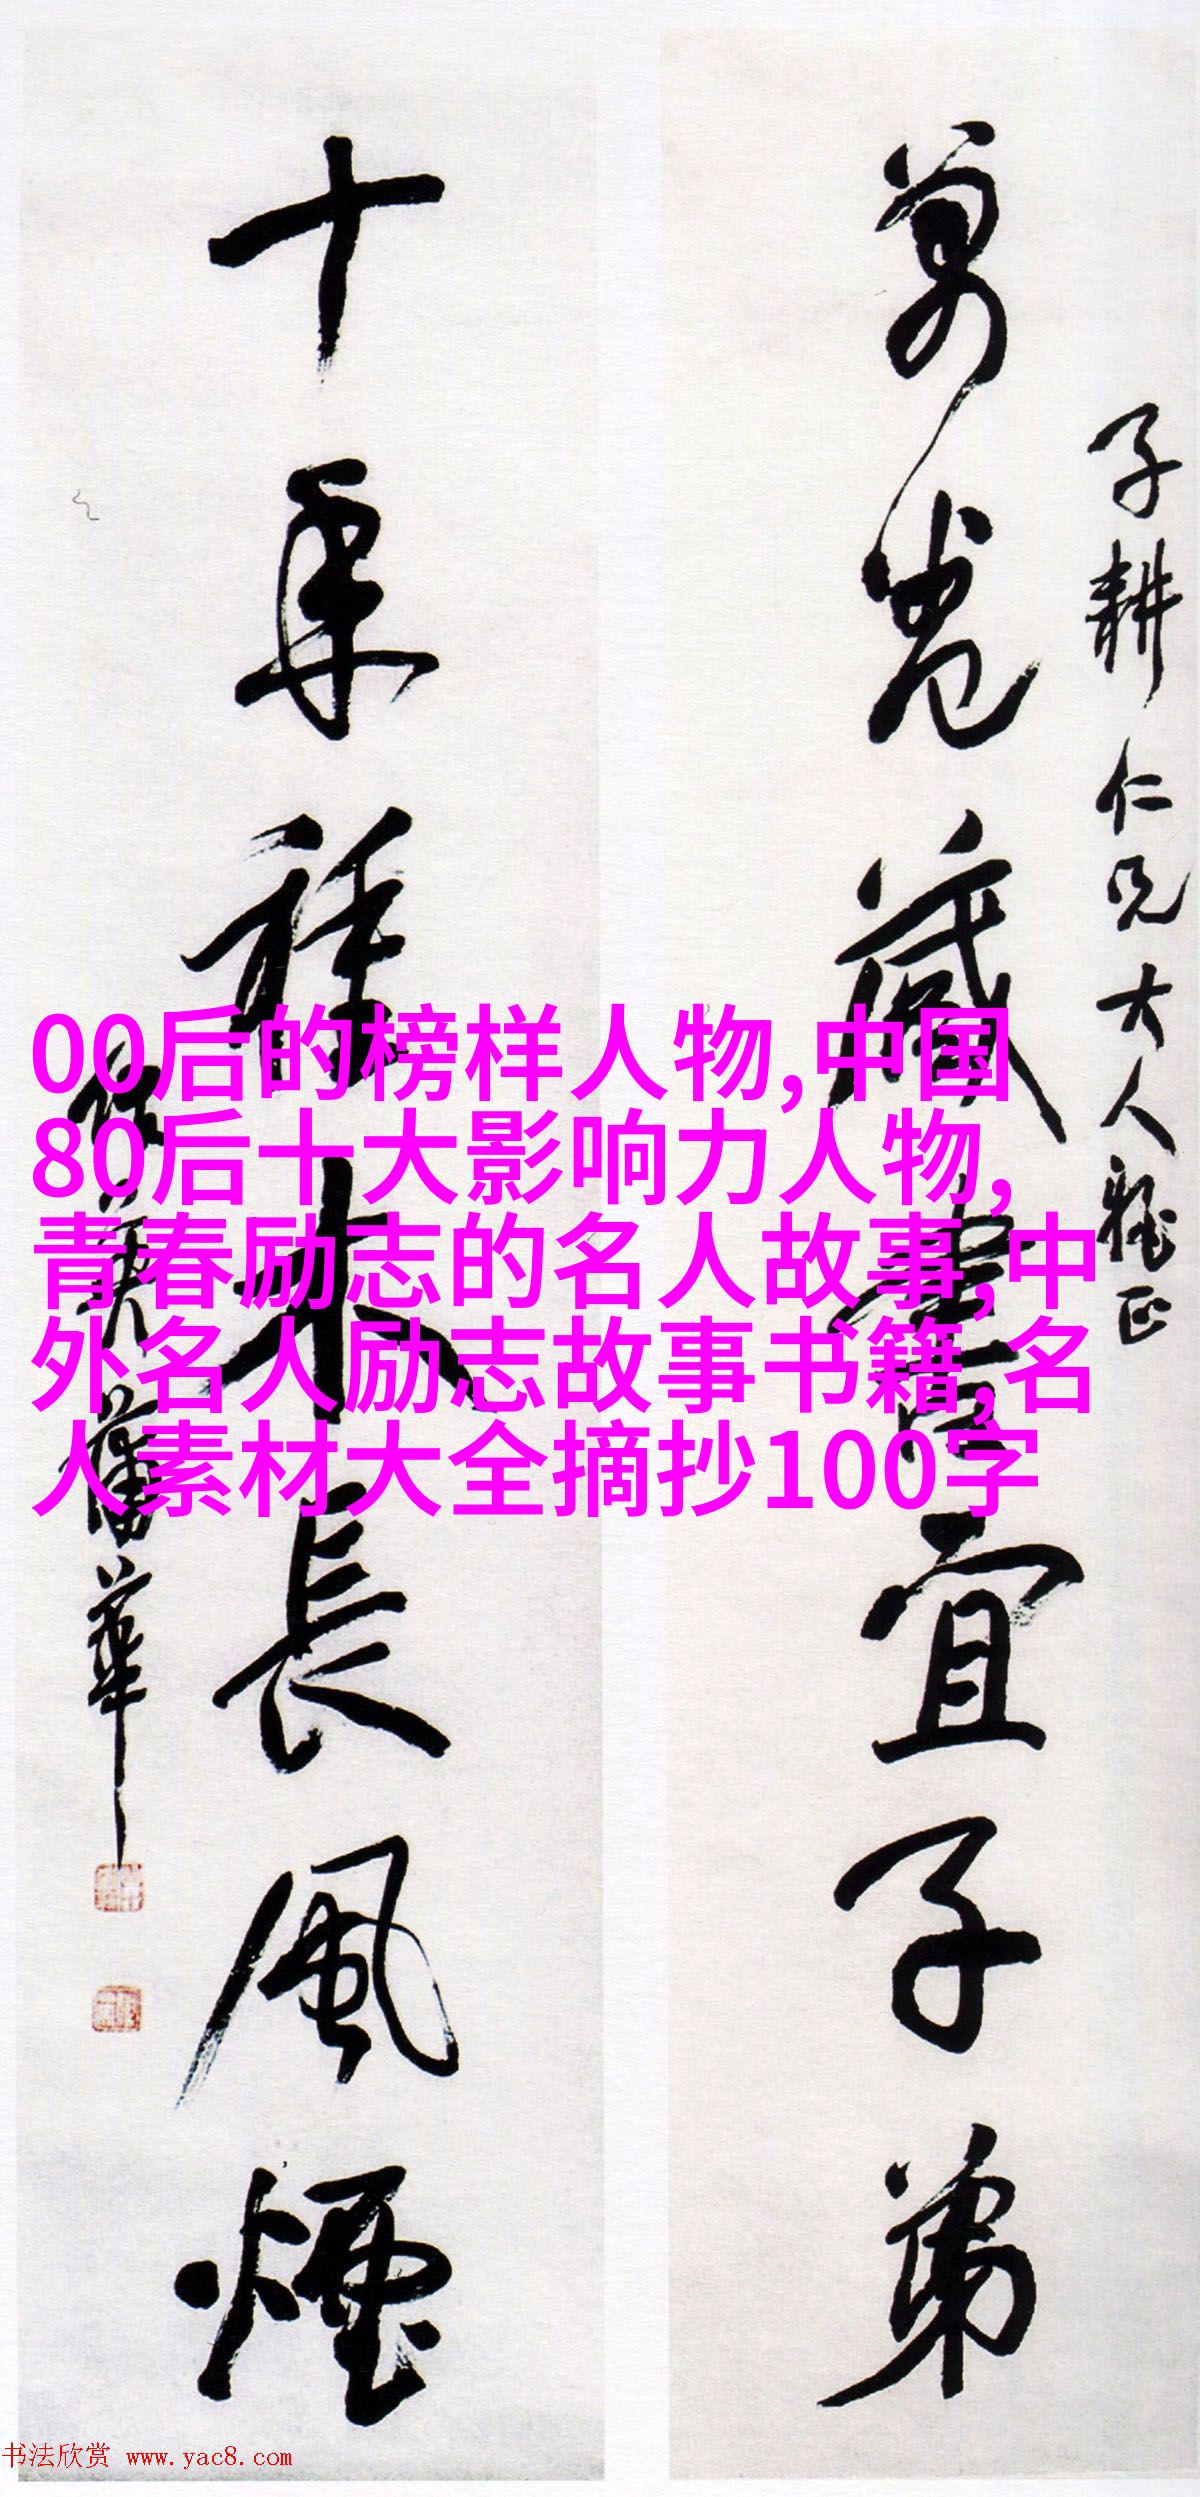 子耕仁兄大人雅正
萬卷藏書宜子弟
十年種木長風煙
作英蒲華
00后的榜样人物,中国
80后十大影响力人物,
青春励志的名人故事,中
外名人励志故事书籍,名
人素材大全摘抄100字
书法欣赏 www.yac8.com